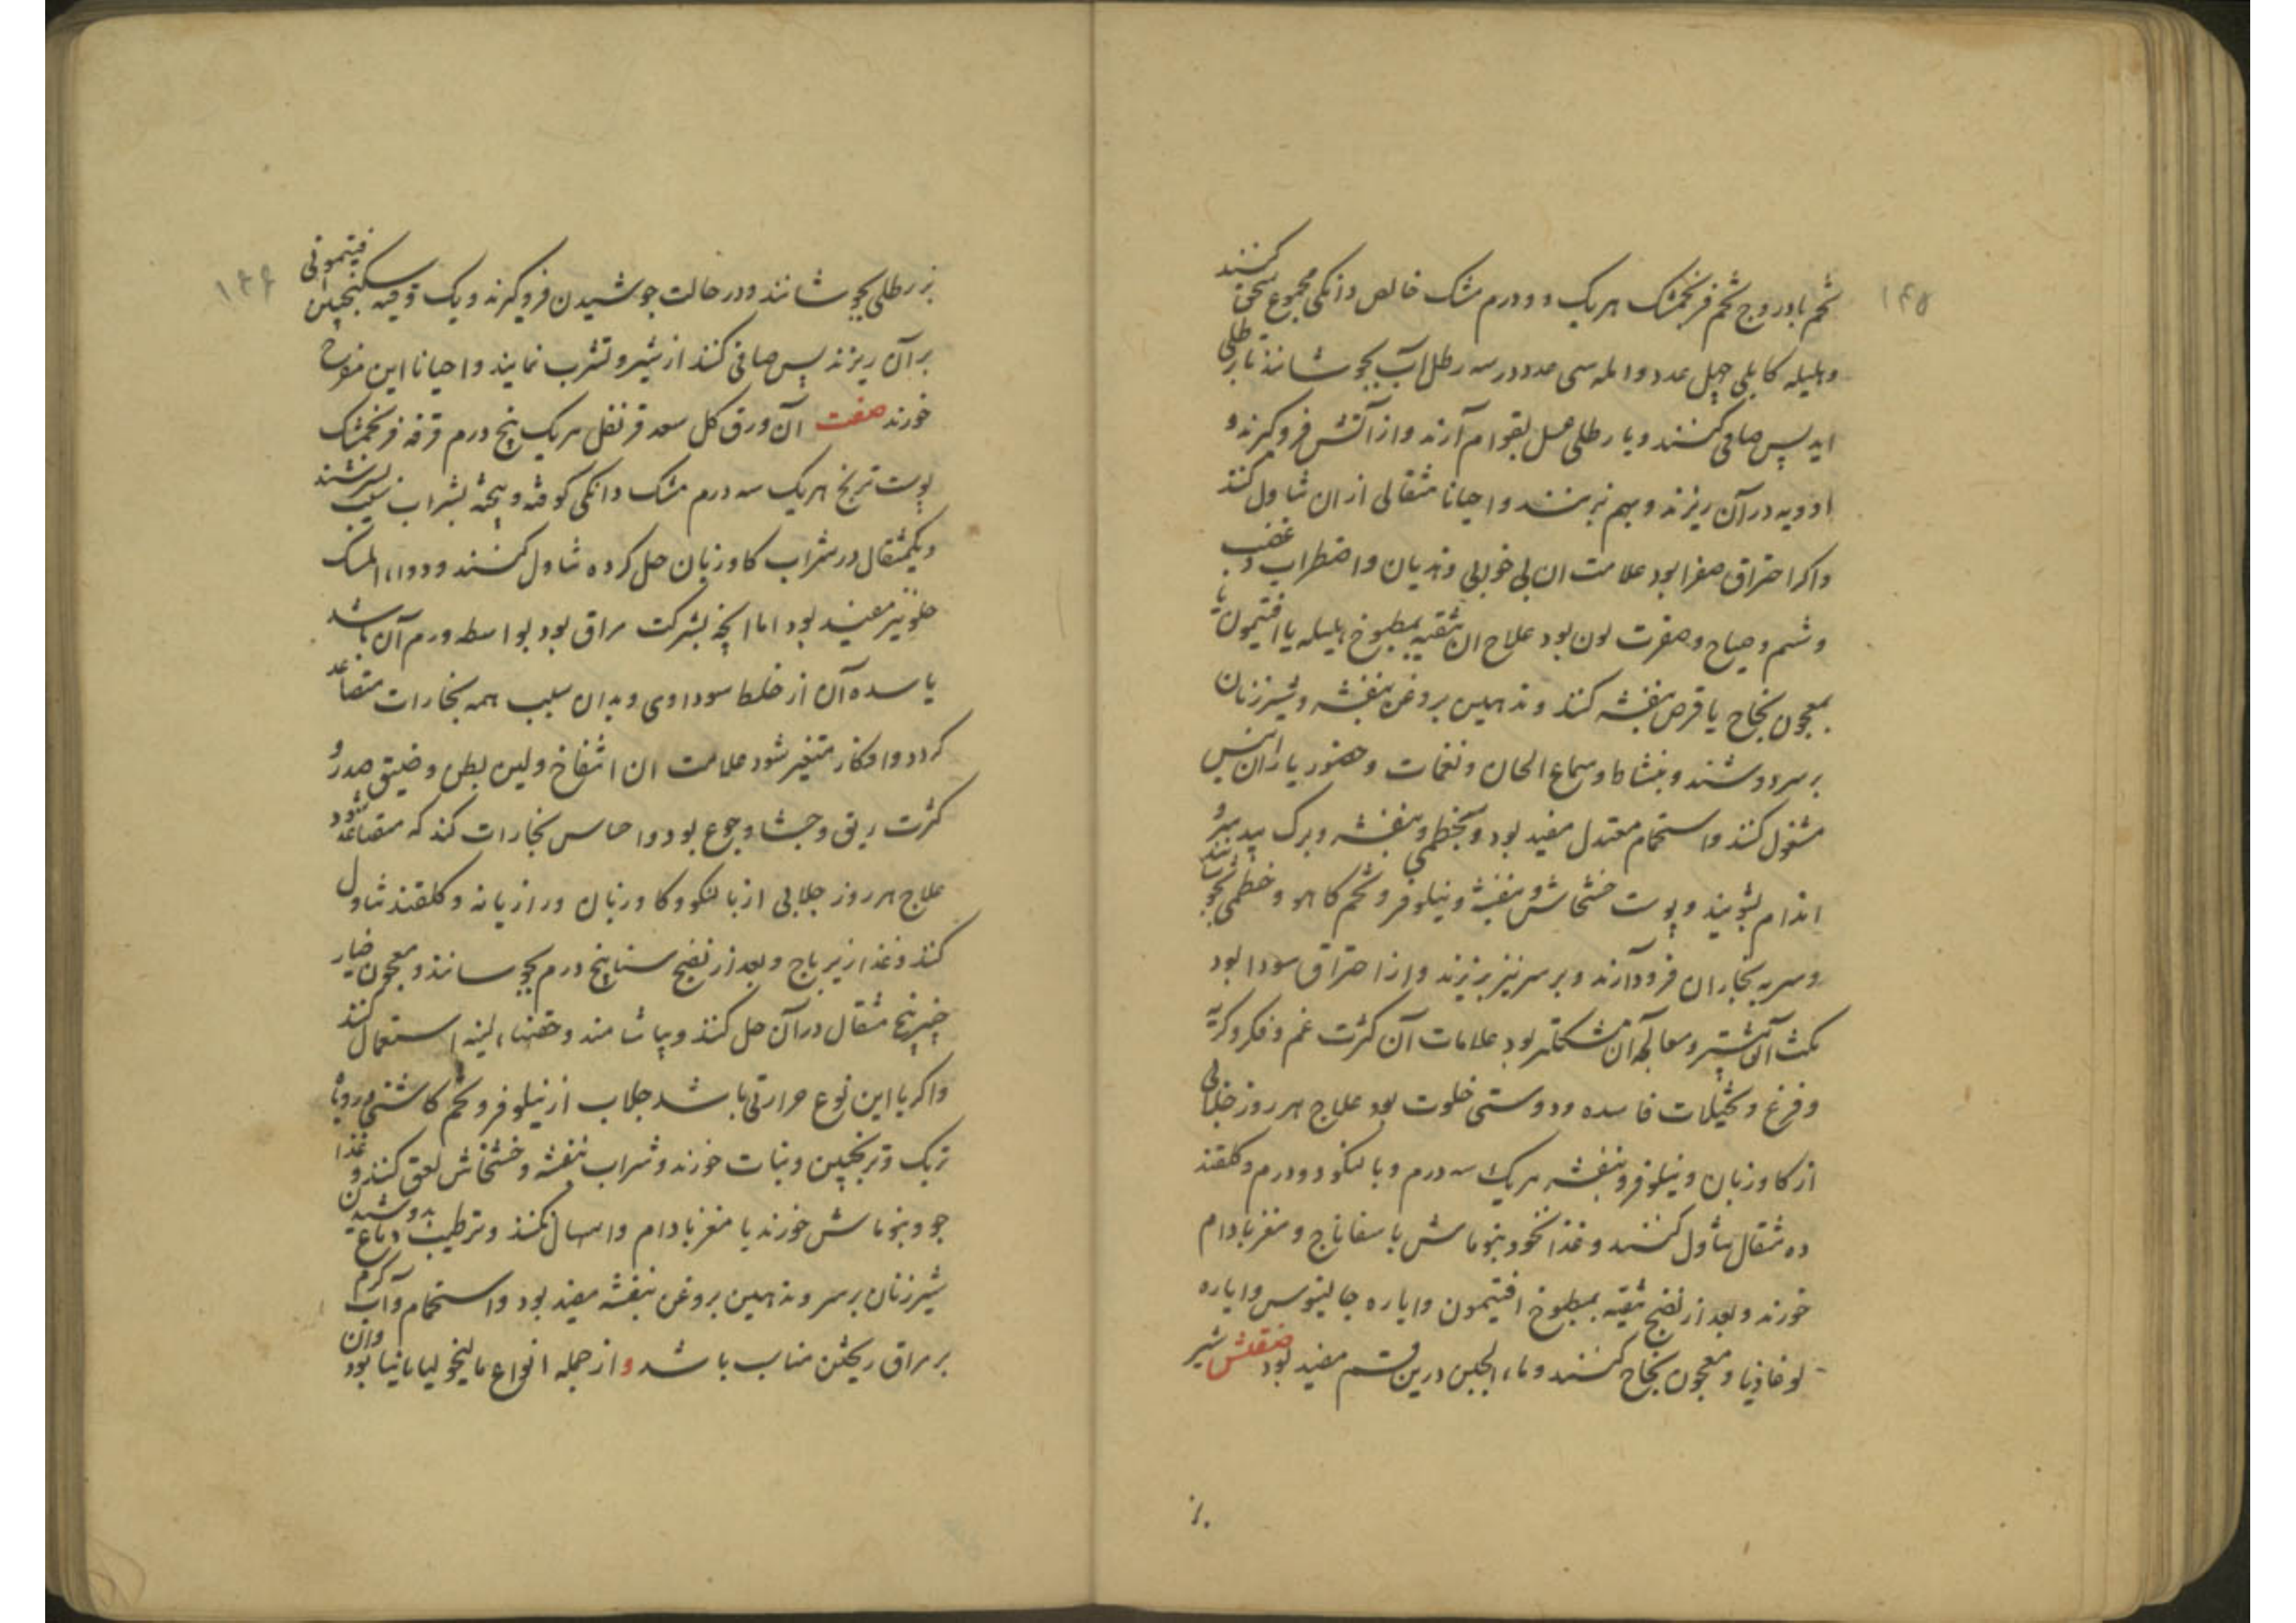 ۱۴۵
تخم بادروج تخم فرنجمشک هریک دو درم مشک خالص دانکی مجموع سحق کنند
و هلیله کابلی چهل عدد و امله سی عدد در سه رطل آب بجوشانند تا برطلی
اید پس صافی کنند و با رطلی عسل بقوام آرند و از آتش فروکیرند و
ادویه در آن ریزند و بهم برنند و احیانا مثقالی ازان تناول کنند
واکر احتراق صفرا بود علامت ان بی خوابی و هذیان و اضطراب و غضب
و شتم و صیاح و صفرت لون بود علاج ان تنقیه بمطبوخ هلیله یا افتیمون یا
بمعجون نجاح یا قرص بنفشه کنند و تدهین بروغن بنفشه و شیر زنان
بر سر دوشند و بنشاط و سماع الحان و نغمات و حضور یاران انیس
مشغول کنند و استحمام معتدل مفید بود و بخطمی و بنفشه و برک بید سر و
اندام بشویند و پوست خشخاش و بنفشه و نیلوفر و تخم کاهو و خطمی بجوشانند
و سر به بخاران فرود آرند و بر سر نیز بریزند و از احتراق سودا بود
مکث آن بیشتر و معالجه آن مشکلتر بود علامات آن کثرت غم و فکر و کریه
و فزع و تخیلات فاسده و دوستی خلوت بود علاج هر روز جلابی
از کاوزبان و نیلوفر و بنفشه هریک سه درم و بالنکو دو درم و کلقند
ده مثقال تناول کنند و غذا نخود بنو ماش با سفاناج و مغز بادام
خورند و بعد از نضج تنقیه بمطبوخ افتیمون و ایاره جالینوس و ایاره
لوغاذیا و معجون نجاح کنند و ماء الجبن درین قسم مفید بود صفتش شیر
بز
۱۴۶
بز رطلی بجوشانند و در حالت جوشیدن فروکیرند و یک وقیه سکنجبین افیتمونی
بر آن ریزند پس صافی کنند از شیر و تشرب نمایند و احیانا این مفرح
خورند صفت آن ورق کل سعد قرنفل هریک پنج درم قرفه فرنجمشک
پوست ترنج هریک سه درم مشک دانکی کوفته و بیخته بشراب سیب بسرشند
و یکمثقال در شراب کاوزبان حل کرده تناول کنند و دواء المسک
حلو نیز مفید بود اما انچه بشرکت مراق بود بواسطه ورم آن باشد
یا سده آن از خلط سوداوی و بدان سبب همه بخارات متصاعد
کردد و افکار متغیر شود علامت ان انتفاخ و لین بطن و ضیق صدر و
کثرت ریق و جشا و جوع بود و احساس بخارات کند که متصاعد شود
علاج هر روز جلابی از بالنکو و کاوزبان و رازیانه و کلقند تناول
کنند و غذا زیرباج و بعد از نضج سنا پنج درم بجوسانند و معجون خیار
چنبر پنج مثقال در آن حل کنند و بیاشامند و حقنهاء لینه استعمال کنند
واکر با این نوع حرارتی باشد جلاب از نیلوفر و تخم کاسنی و روبا
تربک و ترنجبین و نبات خورند و شراب بنفشه و خشخاش لعق کنند و غذا
جو و بنو ماش خورند با مغز بادام و اسهال نکنند و ترطیب دماغ بدوشیدن
شیر زنان بر سر و تدهین بروغن بنفشه مفید بود و استحمام و آب کرم
بر مراق ریختن مناسب باشد و از جمله انواع مالیخولیا مانیا بود وان